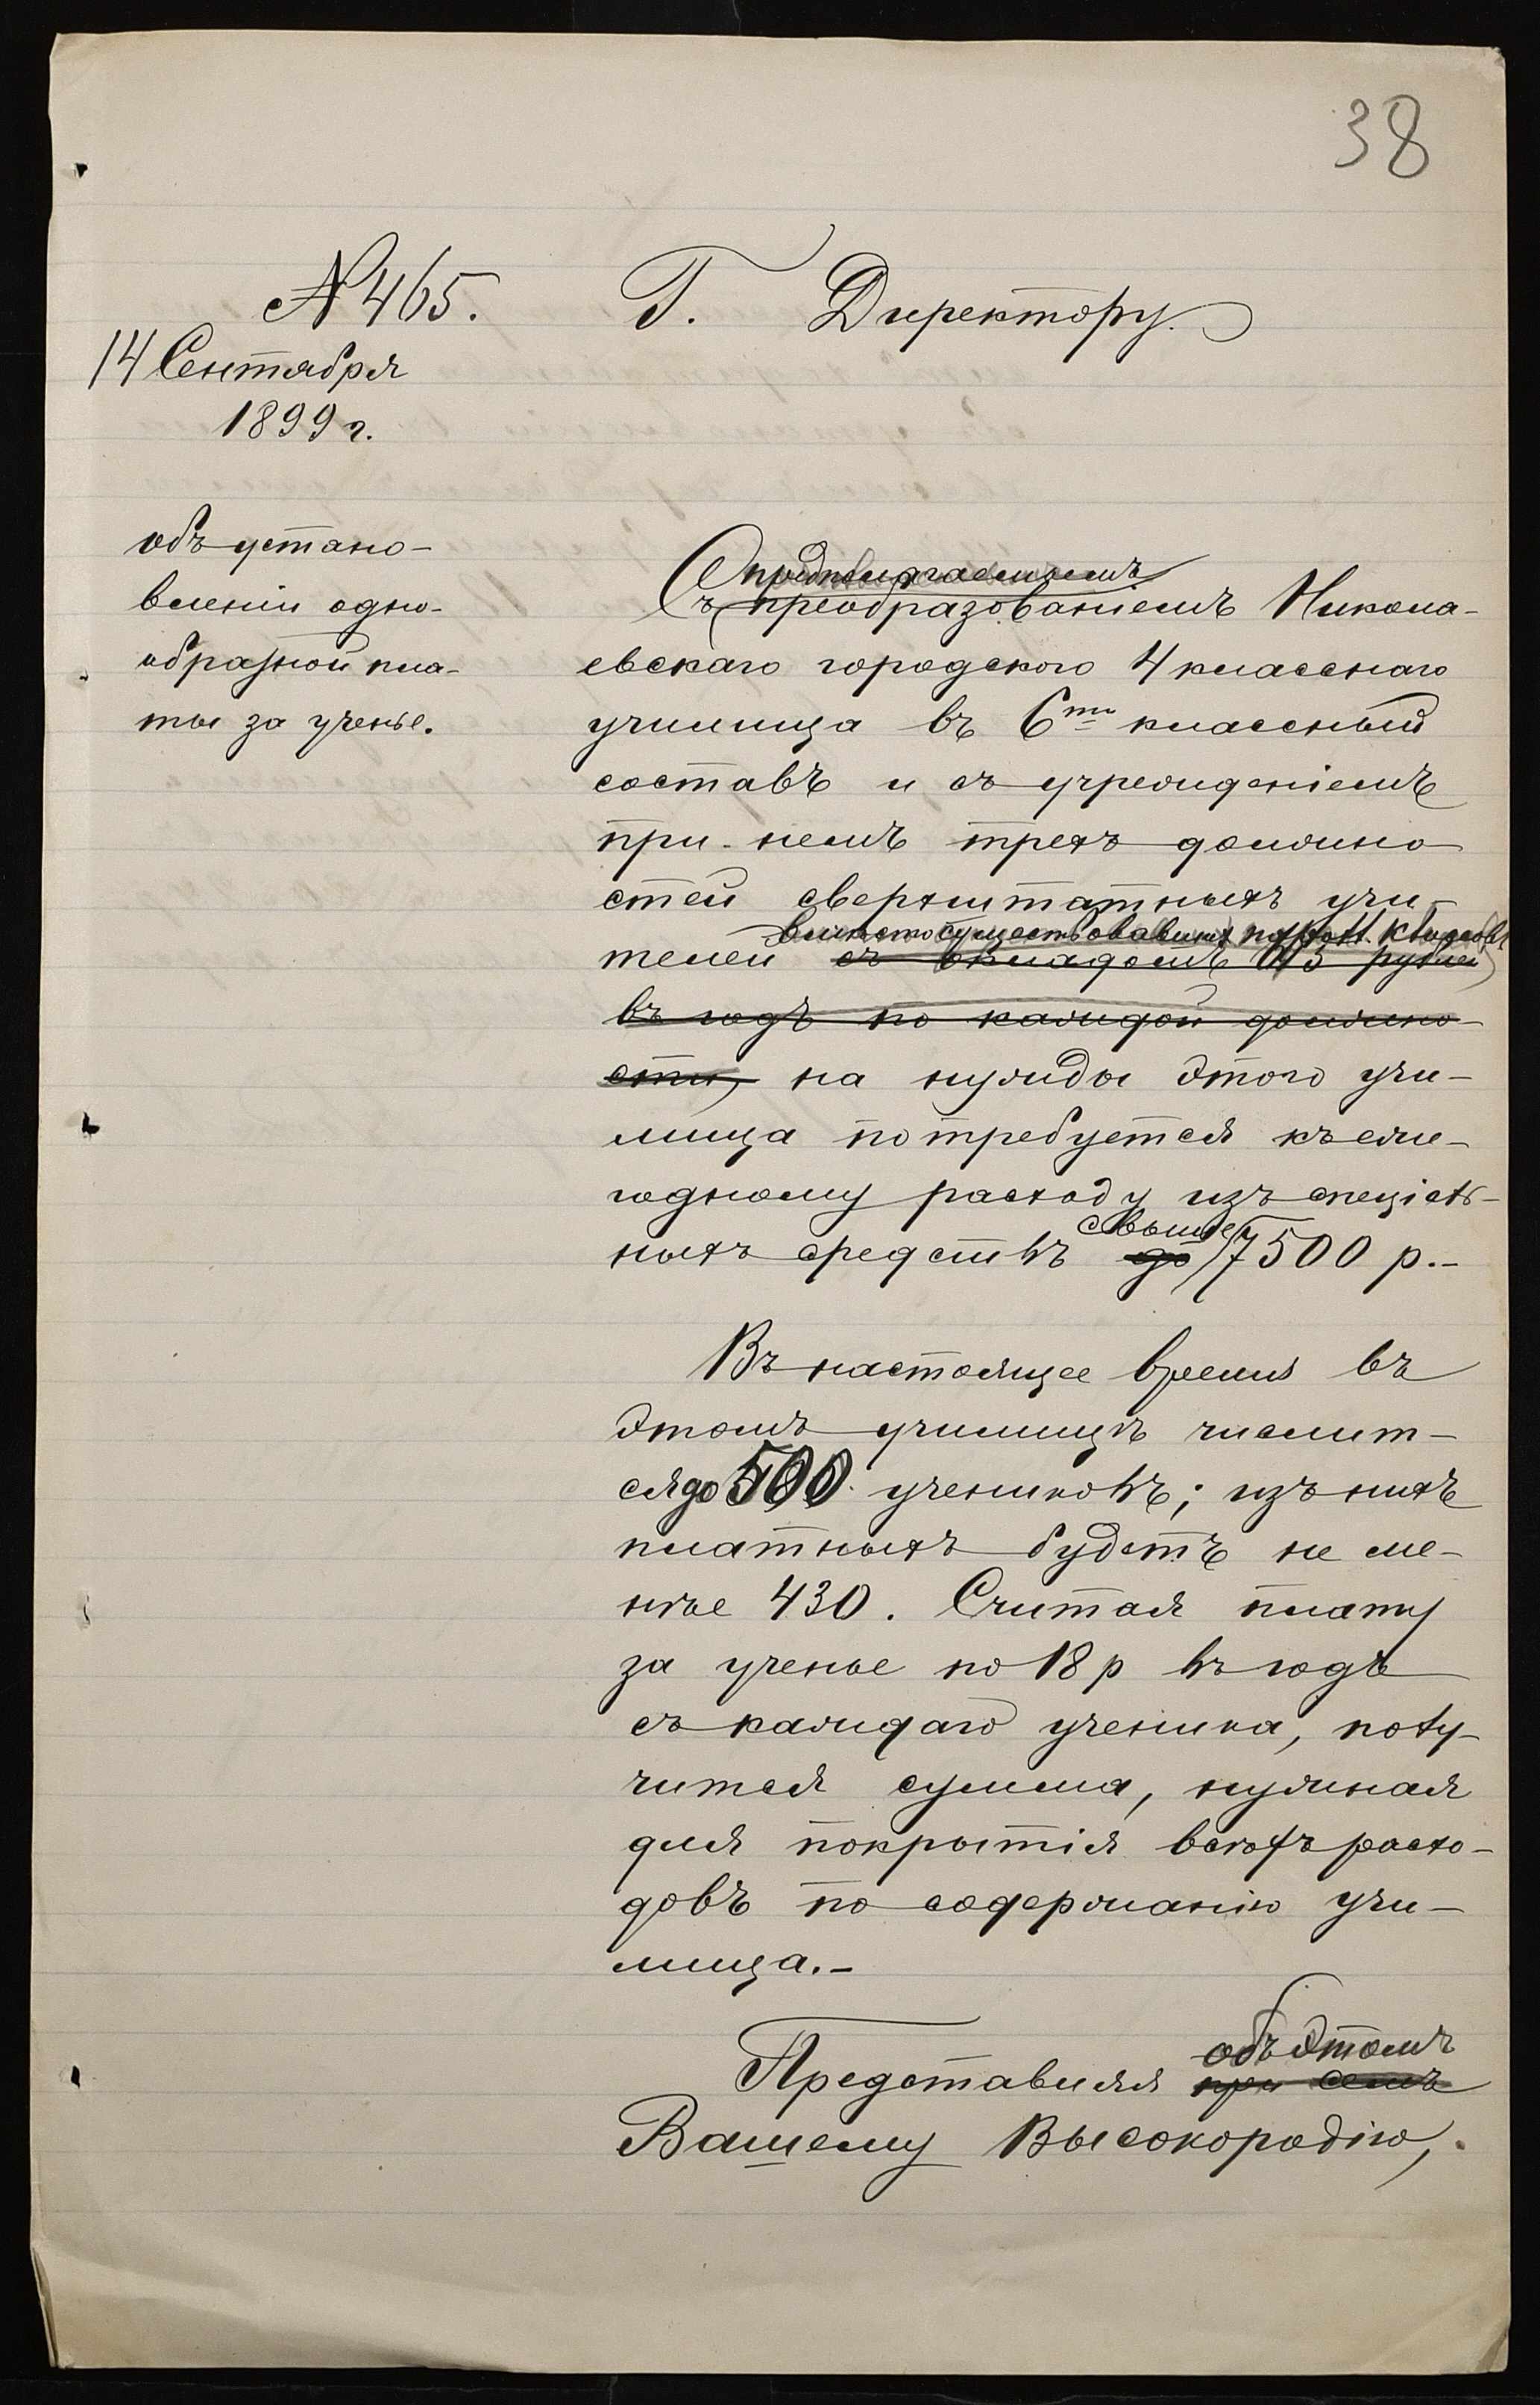 38
№ 465.
Г. Директору.
14 Сентября
1899 г.
объ устано-
вленіи одно-
образной пла-
ты за ученье.
предполагаемымъ
Съ преобразованіемъ Никола-
евскаго городского 4 класснаго
училища въ 6ти классный
составъ и съ учрежденіемъ
при немъ трехъ должно
стей сверхштатныхъ учи-
вмѣсто существовавшихъ
телей съ окладомъ рублей
въ годъ по каждой должно-
сти, на нужды этого учи-
лища потребуется къ еже-
годному расходу изъ спеціаль-
свыше
ныхъ средствъ до 7500 р.-
Въ настоящее время въ
этомъ училищѣ числит-
ся до 500 учениковъ; изъ нихъ
платныхъ будетъ не ме-
нѣе 430. Считая плату
за ученье по 18 р въ годъ
съ каждаго ученика, полу-
чится сумма, нужная
для покрытія всѣхъ расхо-
довъ по содержанію учи-
лища.-
объ этомъ
Представляя при семъ
Вашему Высокородію,